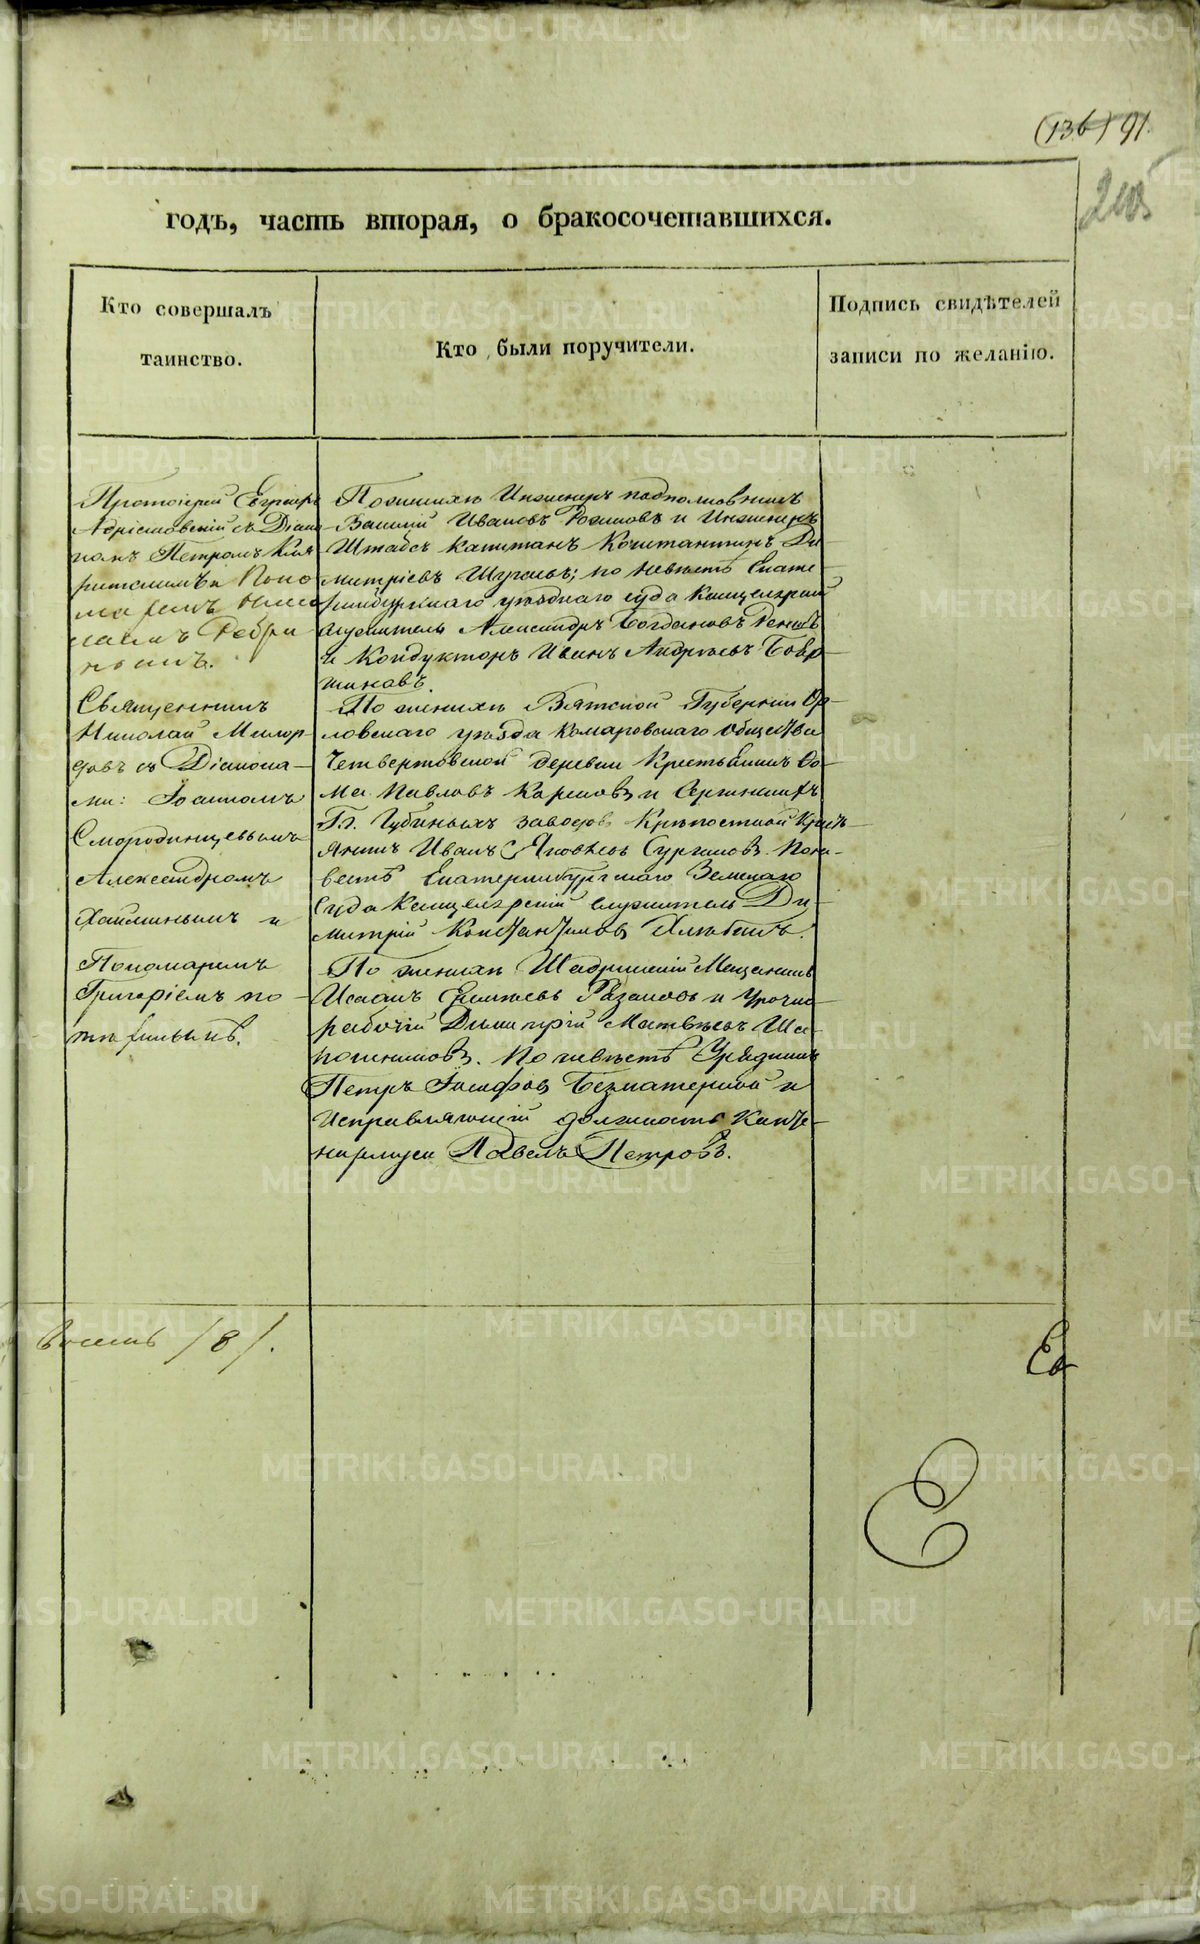 (136) 91.
205
годъ, часть вторая, о бракосочетавшихся.
Кто совершалъ
таинство.
Кто были поручители.
Подпись свидѣтелей
записи по желанію.
Протоіерей
съ Діако-
номъ Петромъ
Поно
маремъ
Священникъ
Николай Милор-
довъ съ Діакона-
ми: Іоанномъ
Смородинцевымъ
Александромъ
Хайминымъ и
Пономаремъ
Григоріемъ По-
Восемь /8/.
По женихѣ Инженеръ подполковникъ
Василій Ивановъ Рожковъ и Инженеръ
Штабсъ Капитанъ Константинъ Ди-
митріевъ по невѣстѣ Екате-
ринбургскаго уѣзднаго суда Канцелярскій
служитель Александръ Богдановъ
и Кондукторъ Иванъ Андреевъ Бобр-
шиновъ.
По женихѣ Вятской Губерніи Ор-
ловскаго уѣзда Комаровскаго общества
Четвертовской деревни Крестьянинъ Ѳо-
ма Павловъ и Сергинскихъ
Гг. Губиныхъ заводовъ Крѣпостной Крест-
янинъ Иванъ Яковлевъ По не-
вестѣ Екатеринбургскаго Земскаго
Суда Канцелярскій служитель Ди-
митрій Константиновъ Хлѣбинъ.
По женихѣ Шадринскій Мещанинъ
Исаакъ и Урочно-
рабочій Димитрій Матвѣевъ Ша-
пошниковъ. По невѣстѣ Урядникъ
Петръ Іосифовъ Безматерной и
Исправляющій должность Канце-
Павелъ Петровъ.
Ев
METRIKI.GASO-URAL.RU